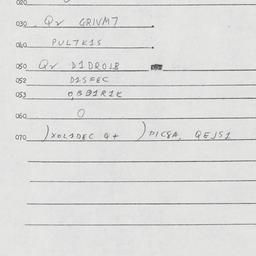 020
030 Qr GRIVM7
040 PUL7K1S
050 Qr D1DR018
052 D1SFEC
053 0,BB1R1K
060 0
070 )XOL1DEC Q+ )PIC8A, QEJS1